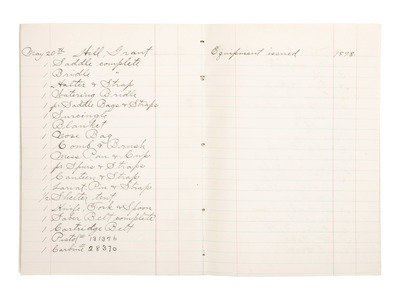 May 20th Hill Grant
1 Saddle complete
1 Bridle "
1 Halter & Strap
1 Watering Bridle
1 pr Saddle Bags & Straps
1 Surcingle
1 Blanket
1 Nose Bag
1 Comb & Brush
1 Mess Pan & Cup
1 pr Spurs & Straps
1 Canteen & Strap
1 Lariat, Pin & Strap
1/2 Shelter tent
1 Knife, Fork & Spoon
1 Saber Belt, complete
1 Cartridge Belt
1 Pistol
1 Carbine 28370
Equipment issued 1898.